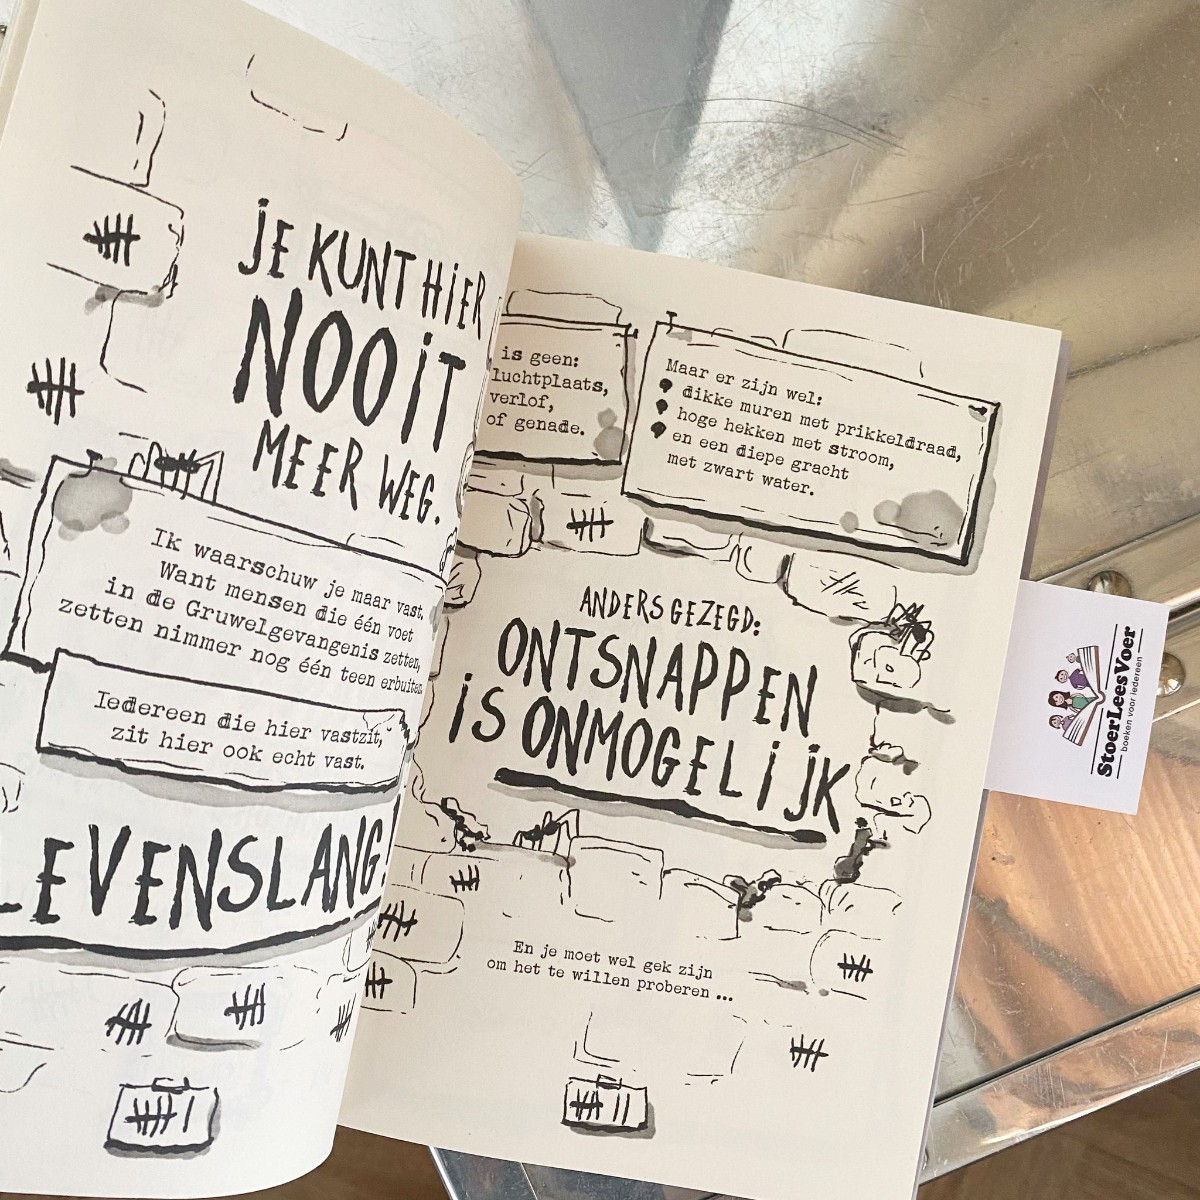 JE KUNT HIER
NOOIT
MEER WEG.
Ik waarschuw je maar vast.
Want mensen die één voet
in de Gruwelgevangenis zetten,
zetten nimmer nog één teen erbuiten.
Iedereen die hier vastzit,
zit hier ook echt vast.
LEVENSLANG!
is geen:
luchtplaats,
verlof,
of genade.
Maar er zijn wel:
dikke muren met prikkeldraad,
hoge hekken met stroom,
en een diepe gracht
met zwart water.
ANDERS GEZEGD:
ONTSNAPPEN
IS ONMOGELIJK
En je moet wel gek zijn
om het te willen proberen ...
StoerLeesVoer
boeken voor iedereen